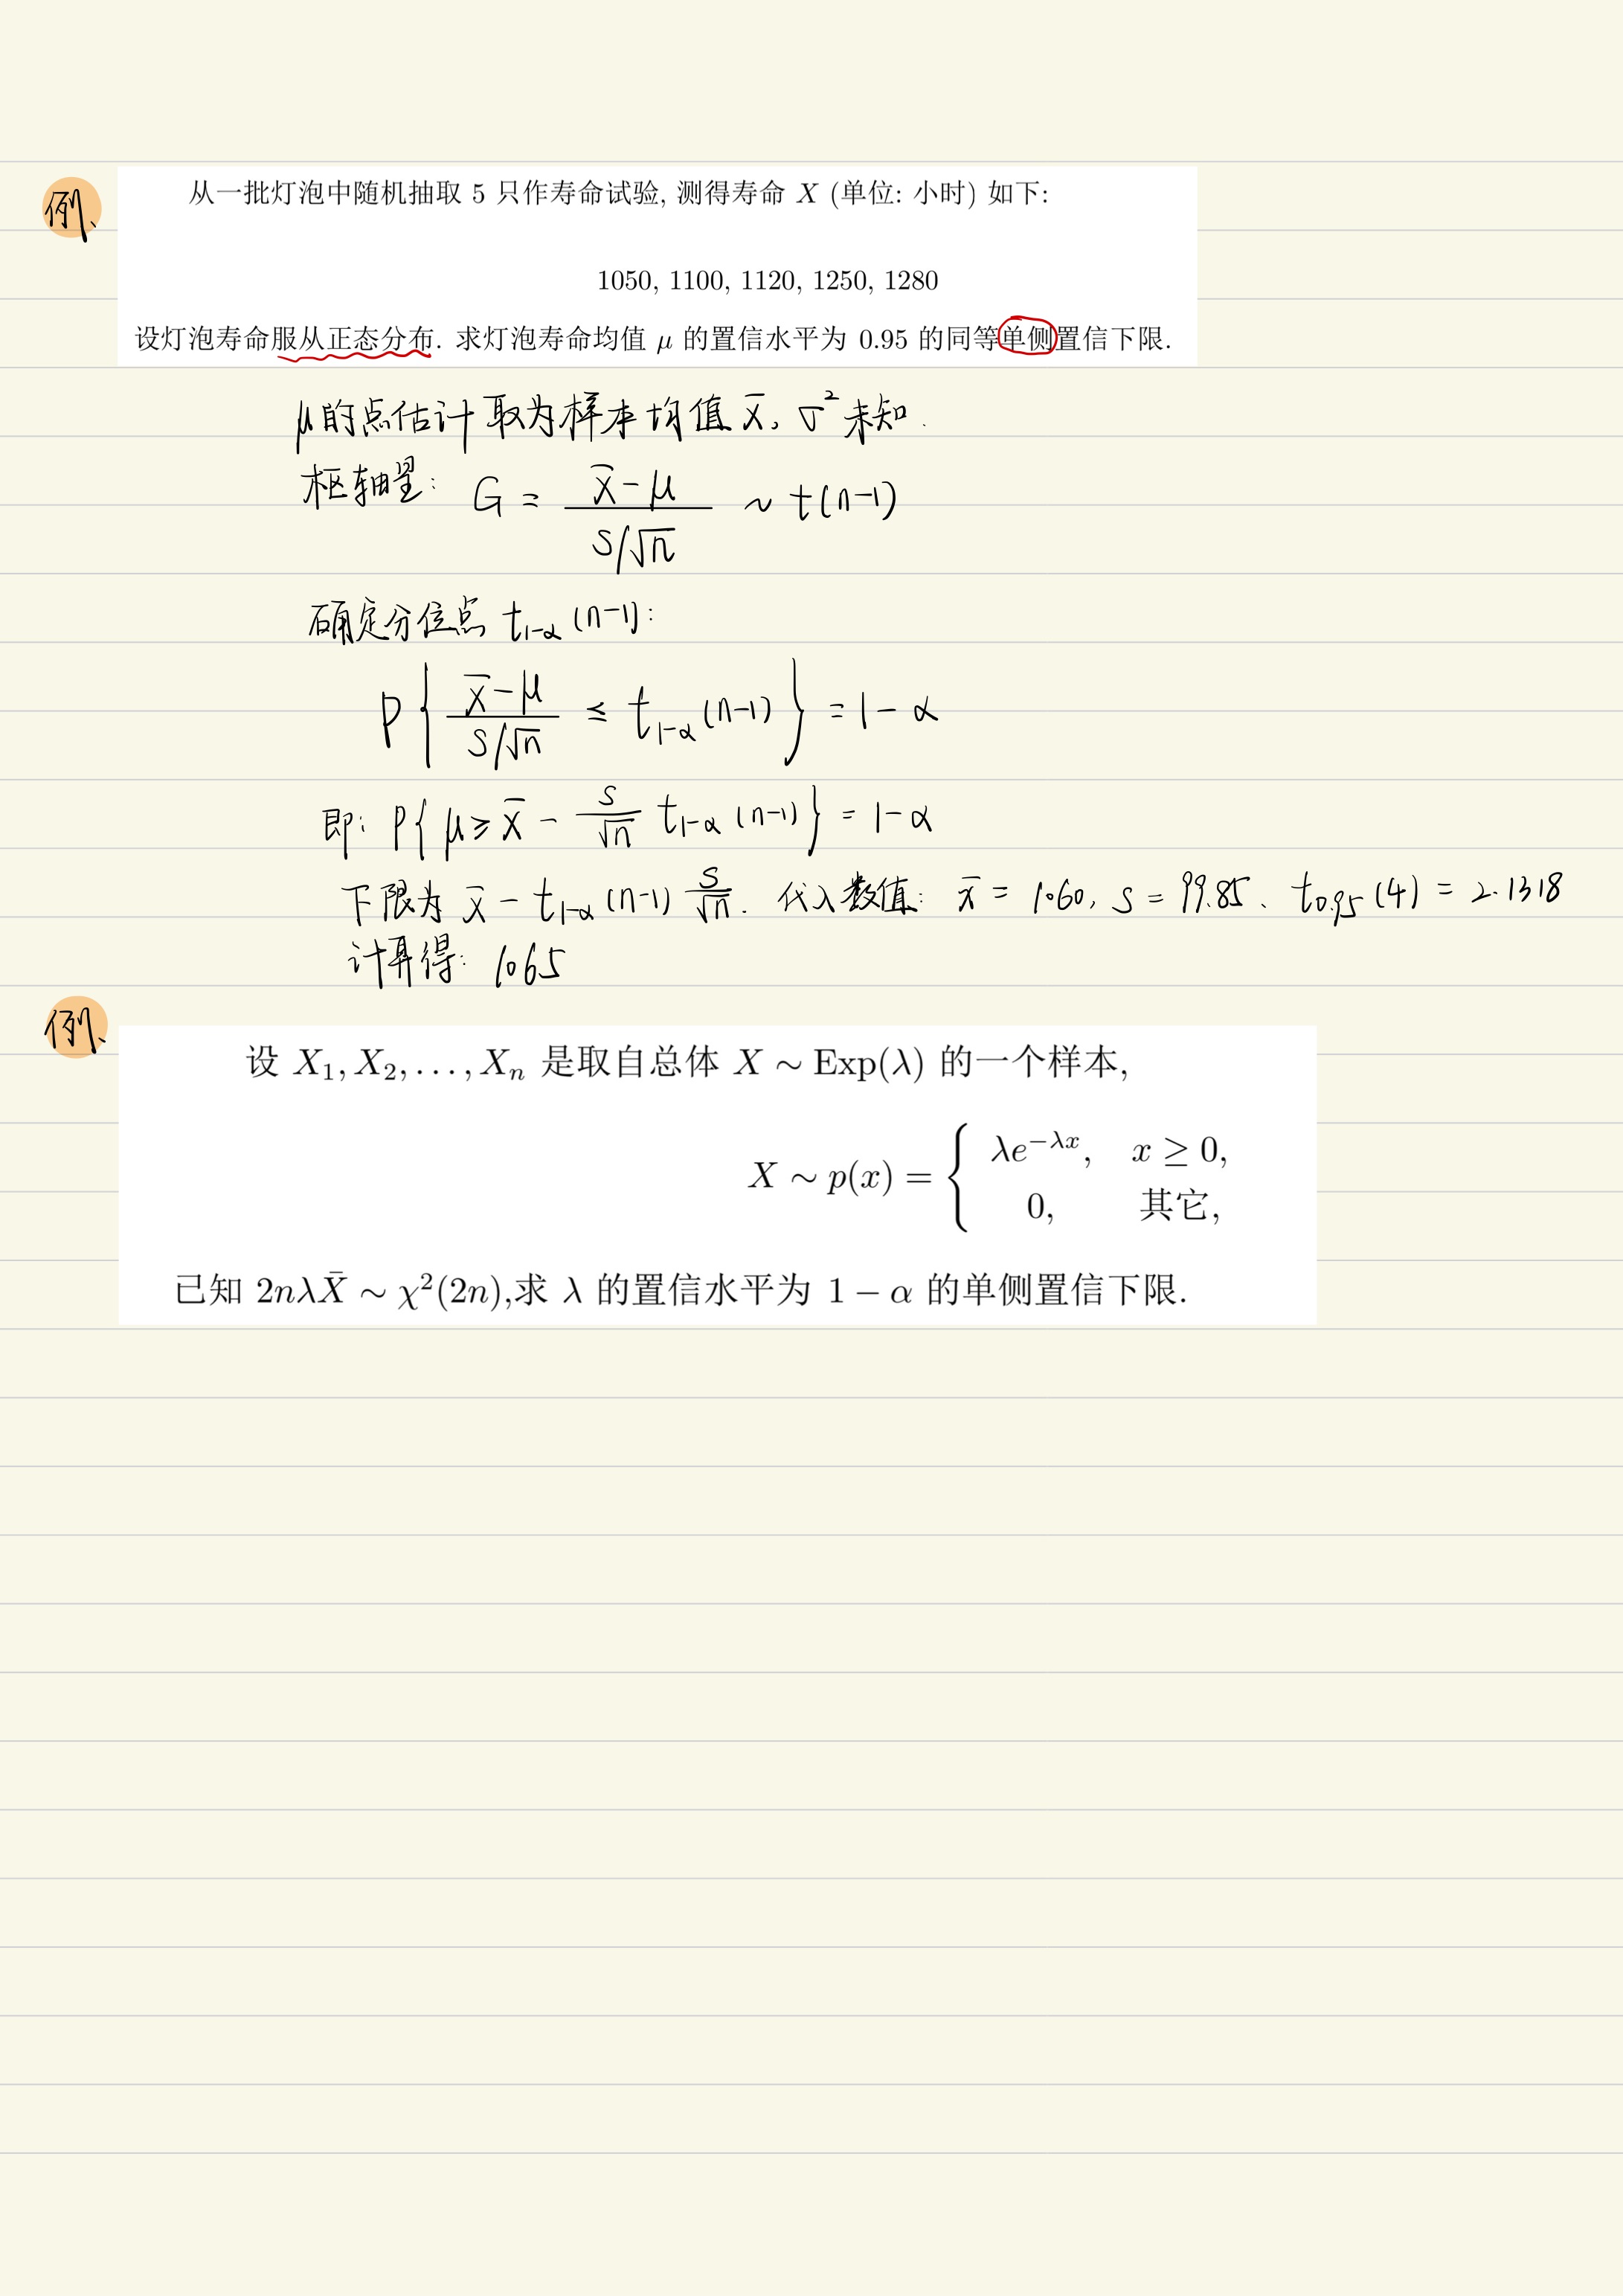 例、
从一批灯泡中随机抽取 5 只作寿命试验, 测得寿命 X (单位: 小时) 如下:
1050, 1100, 1120, 1250, 1280
设灯泡寿命服从正态分布. 求灯泡寿命均值 μ 的置信水平为 0.95 的同等单侧置信下限.
μ的点估计取为样本均值 x̄, σ² 未知.
枢轴量: G = (x̄-μ)/(s/√n) ~ t(n-1)
确定分位点 t_{1-α}(n-1):
P{ (x̄-μ)/(s/√n) ≤ t_{1-α}(n-1) } = 1-α
即: P{ μ ≥ x̄ - s/√n t_{1-α}(n-1) } = 1-α
下限为 x̄ - t_{1-α}(n-1) s/√n. 代入数值: x̄ = 1060, s = 99.85、 t_{0.95}(4) = 2.1318
计算得: 1065
例、
设 X₁, X₂, . . . , Xₙ 是取自总体 X ∼ Exp(λ) 的一个样本,
X ∼ p(x) = { λe^{−λx}, x ≥ 0,
0, 其它,
已知 2nλX̄ ∼ χ²(2n),求 λ 的置信水平为 1 − α 的单侧置信下限.